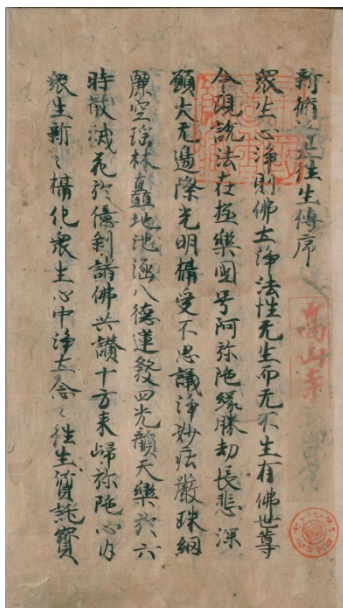 新脩淨土往生傳序
衆生心淨則佛土淨法性无生而无不生有佛世尊
今現説法在極樂國号阿弥陁縁勝劫長悲深
願大无邊際光明攝受不思議淨妙庄嚴珠網
麗空瑶林矗地池涵八德蓮發四光韻天樂於六
時散
花於億刹諸佛共讃十方来歸弥陁心内
衆生新〻攝化衆生心中淨土念〻往生質託寳
高山寺